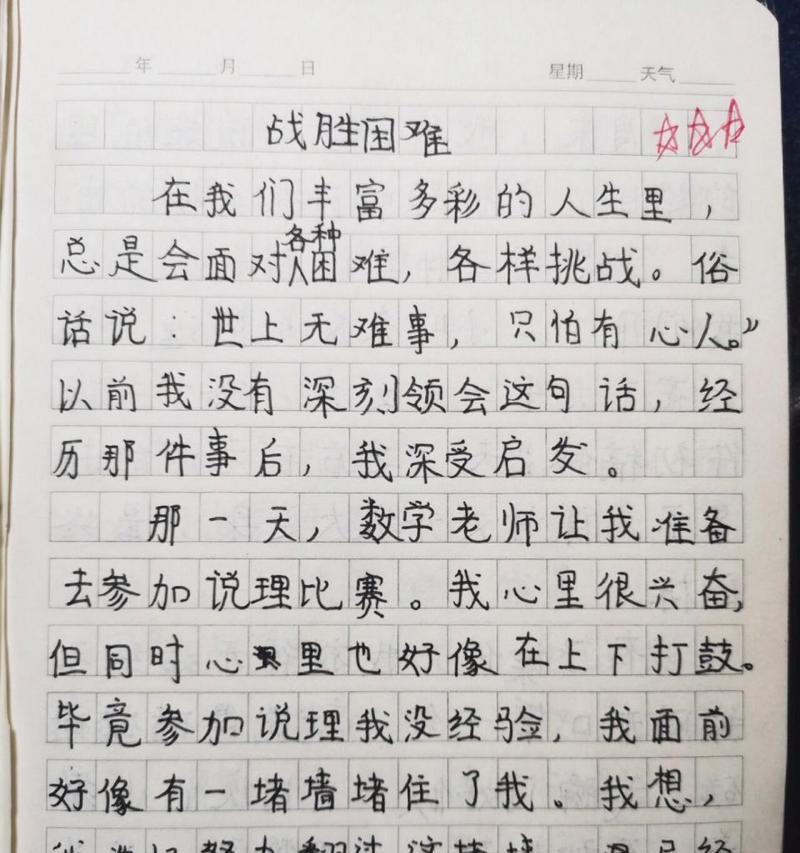 年 月 日 星期 天气
战胜困难
在我们丰富多彩的人生里，
各种
总是会面对困难，各样挑战。俗
话说：世上无难事，只怕有心人。”
以前我没有深刻领会这句话，经
历那件事后，我深受启发。
那一天，数学老师让我准备
去参加说理比赛。我心里很兴奋，
但同时心里也好像在上下打鼓。
毕竟参加说理我没经验，我面前
好像有一堵墙堵住了我。我想，
努力翻过这堵墙